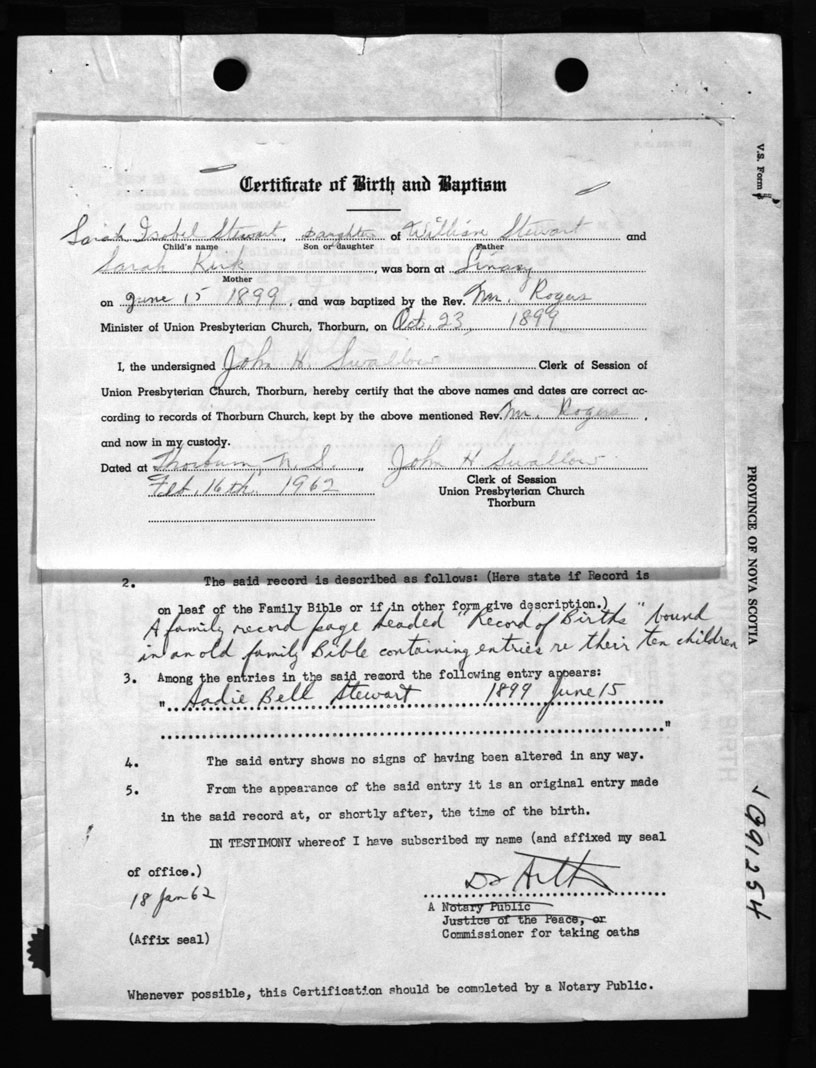 V.S. Form
PROVINCE OF NOVA SCOTIA
Certificate of Birth and Baptism
Sarah Isabel Stewart, Daughter of William Stewart and
Child's name Son or daughter Father
Sarah Kirk, was born at
Mother
on June 15 1899, and was baptized by the Rev. Mr. Rogers
Minister of Union Presbyterian Church, Thorburn, on Oct. 23, 1899
I, the undersigned John H. Swallow Clerk of Session of
Union Presbyterian Church, Thorburn, hereby certify that the above names and dates are correct ac-
cording to records of Thorburn Church, kept by the above mentioned Rev. Mr. Rogers,
and now in my custody.
Dated at Thorburn, N.S., John H Swallow
Feb. 16th, 1962
Clerk of Session
Union Presbyterian Church
Thorburn
2. The said record is described as follows: (Here state if Record is
on leaf of the Family Bible or if in other form give description.)
A family record page headed "Record of Births" bound
in an old family Bible containing entries re their ten children
3. Among the entries in the said record the following entry appears:
" Sadie Bell Stewart 1899 June 15
"
4. The said entry shows no signs of having been altered in any way.
5. From the appearance of the said entry it is an original entry made
in the said record at, or shortly after, the time of the birth.
IN TESTIMONY whereof I have subscribed my name (and affixed my seal
of office.)
18 Jan 62
A Notary Public
Justice of the Peace, or
Commissioner for taking oaths
(Affix seal)
Whenever possible, this Certification should be completed by a Notary Public.
BIRTH